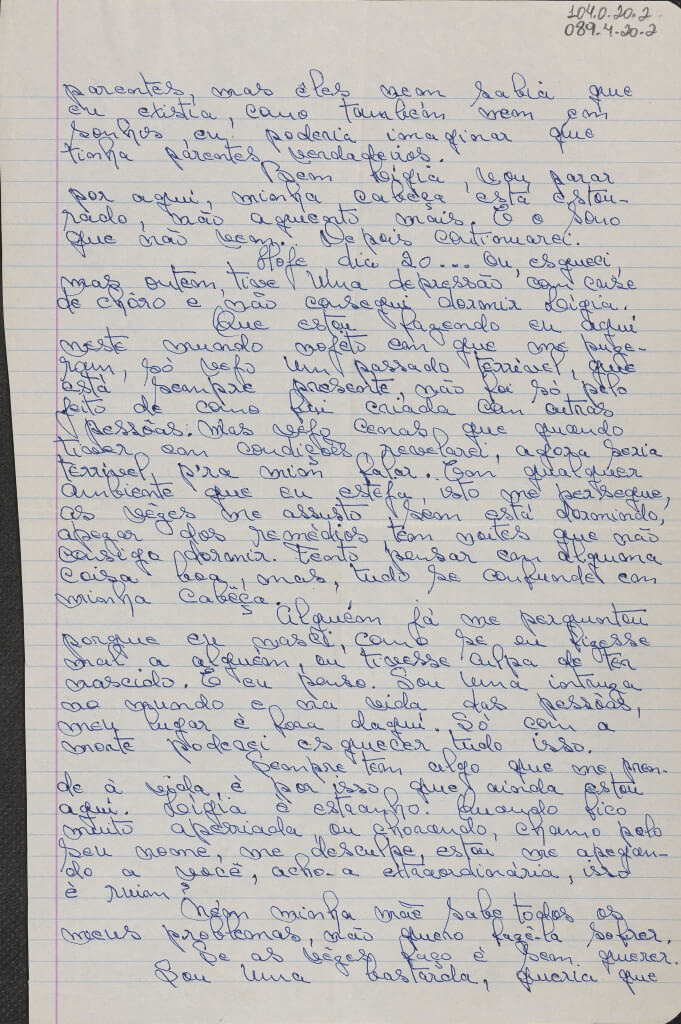 104.0-20-2
089.4-20-2
parentes, mas êles nem sabia que
eu existia, como também nem em
sonhos eu poderia imaginar que
tinha parentes verdadeiros.
Bem Lígia, vou parar
por aqui, minha cabeça está estou-
rado, não aguento mais. E o sono
que não vem. Depois continuarei.
Hoje dia 20... Ou, esqueci,
mas ontem, tive uma depressão, com crise
de chôro e não consegui dormir Lígia.
Que estou fazendo eu aqui
neste mundo nojeto em que me puze-
ram, só vejo um passado terrivel, que
está sempre presente, não foi só pelo
feito de como fui criada com outras
pessôas. Mas vejo cenas que quando
tiver com condições revelarei, agora seria
terrivel p'ra mim falar. Em qualquer
ambiente que eu esteja, isto me persegue,
as vêzes me assusto sem está dormindo,
apezar dos remédios tem noites que não
consigo dormir. Tento pensar em alguma
coisa boa, mas, tudo se confunde em
minha cabêça.
Alguém já me perguntou
porque eu nasci, como se eu fizesse
mal a alguém, ou tivesse culpa de ter
nascido. E eu penso. Sou uma intruza
no mundo e na vida das pessôas,
meu lugar é fora daqui. Só com a
morte poderei esquecer tudo isso.
Sempre tem algo que me pren-
de à vida, é por isso que ainda estou
aqui. Lígia é estranho. Quando fico
muito aperriada, ou chorando, chamo pelo
seu nome, me desculpe, estou me apegan-
do a você, acho-a extraordinária, isso
é ruim?
Nem minha mãe sabe todos os
meus problemas, não quero fazê-la sofrer.
Se as vêzes faço é sem querer.
Sou uma bastarda, queria que